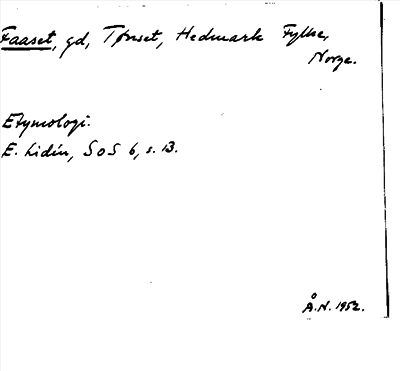 Faaset, gd, Tønset, Hedmark Fylke,
Norge.
Etymologi:
E. Lidén, SoS 6, s. 13.
Å.N. 1952.